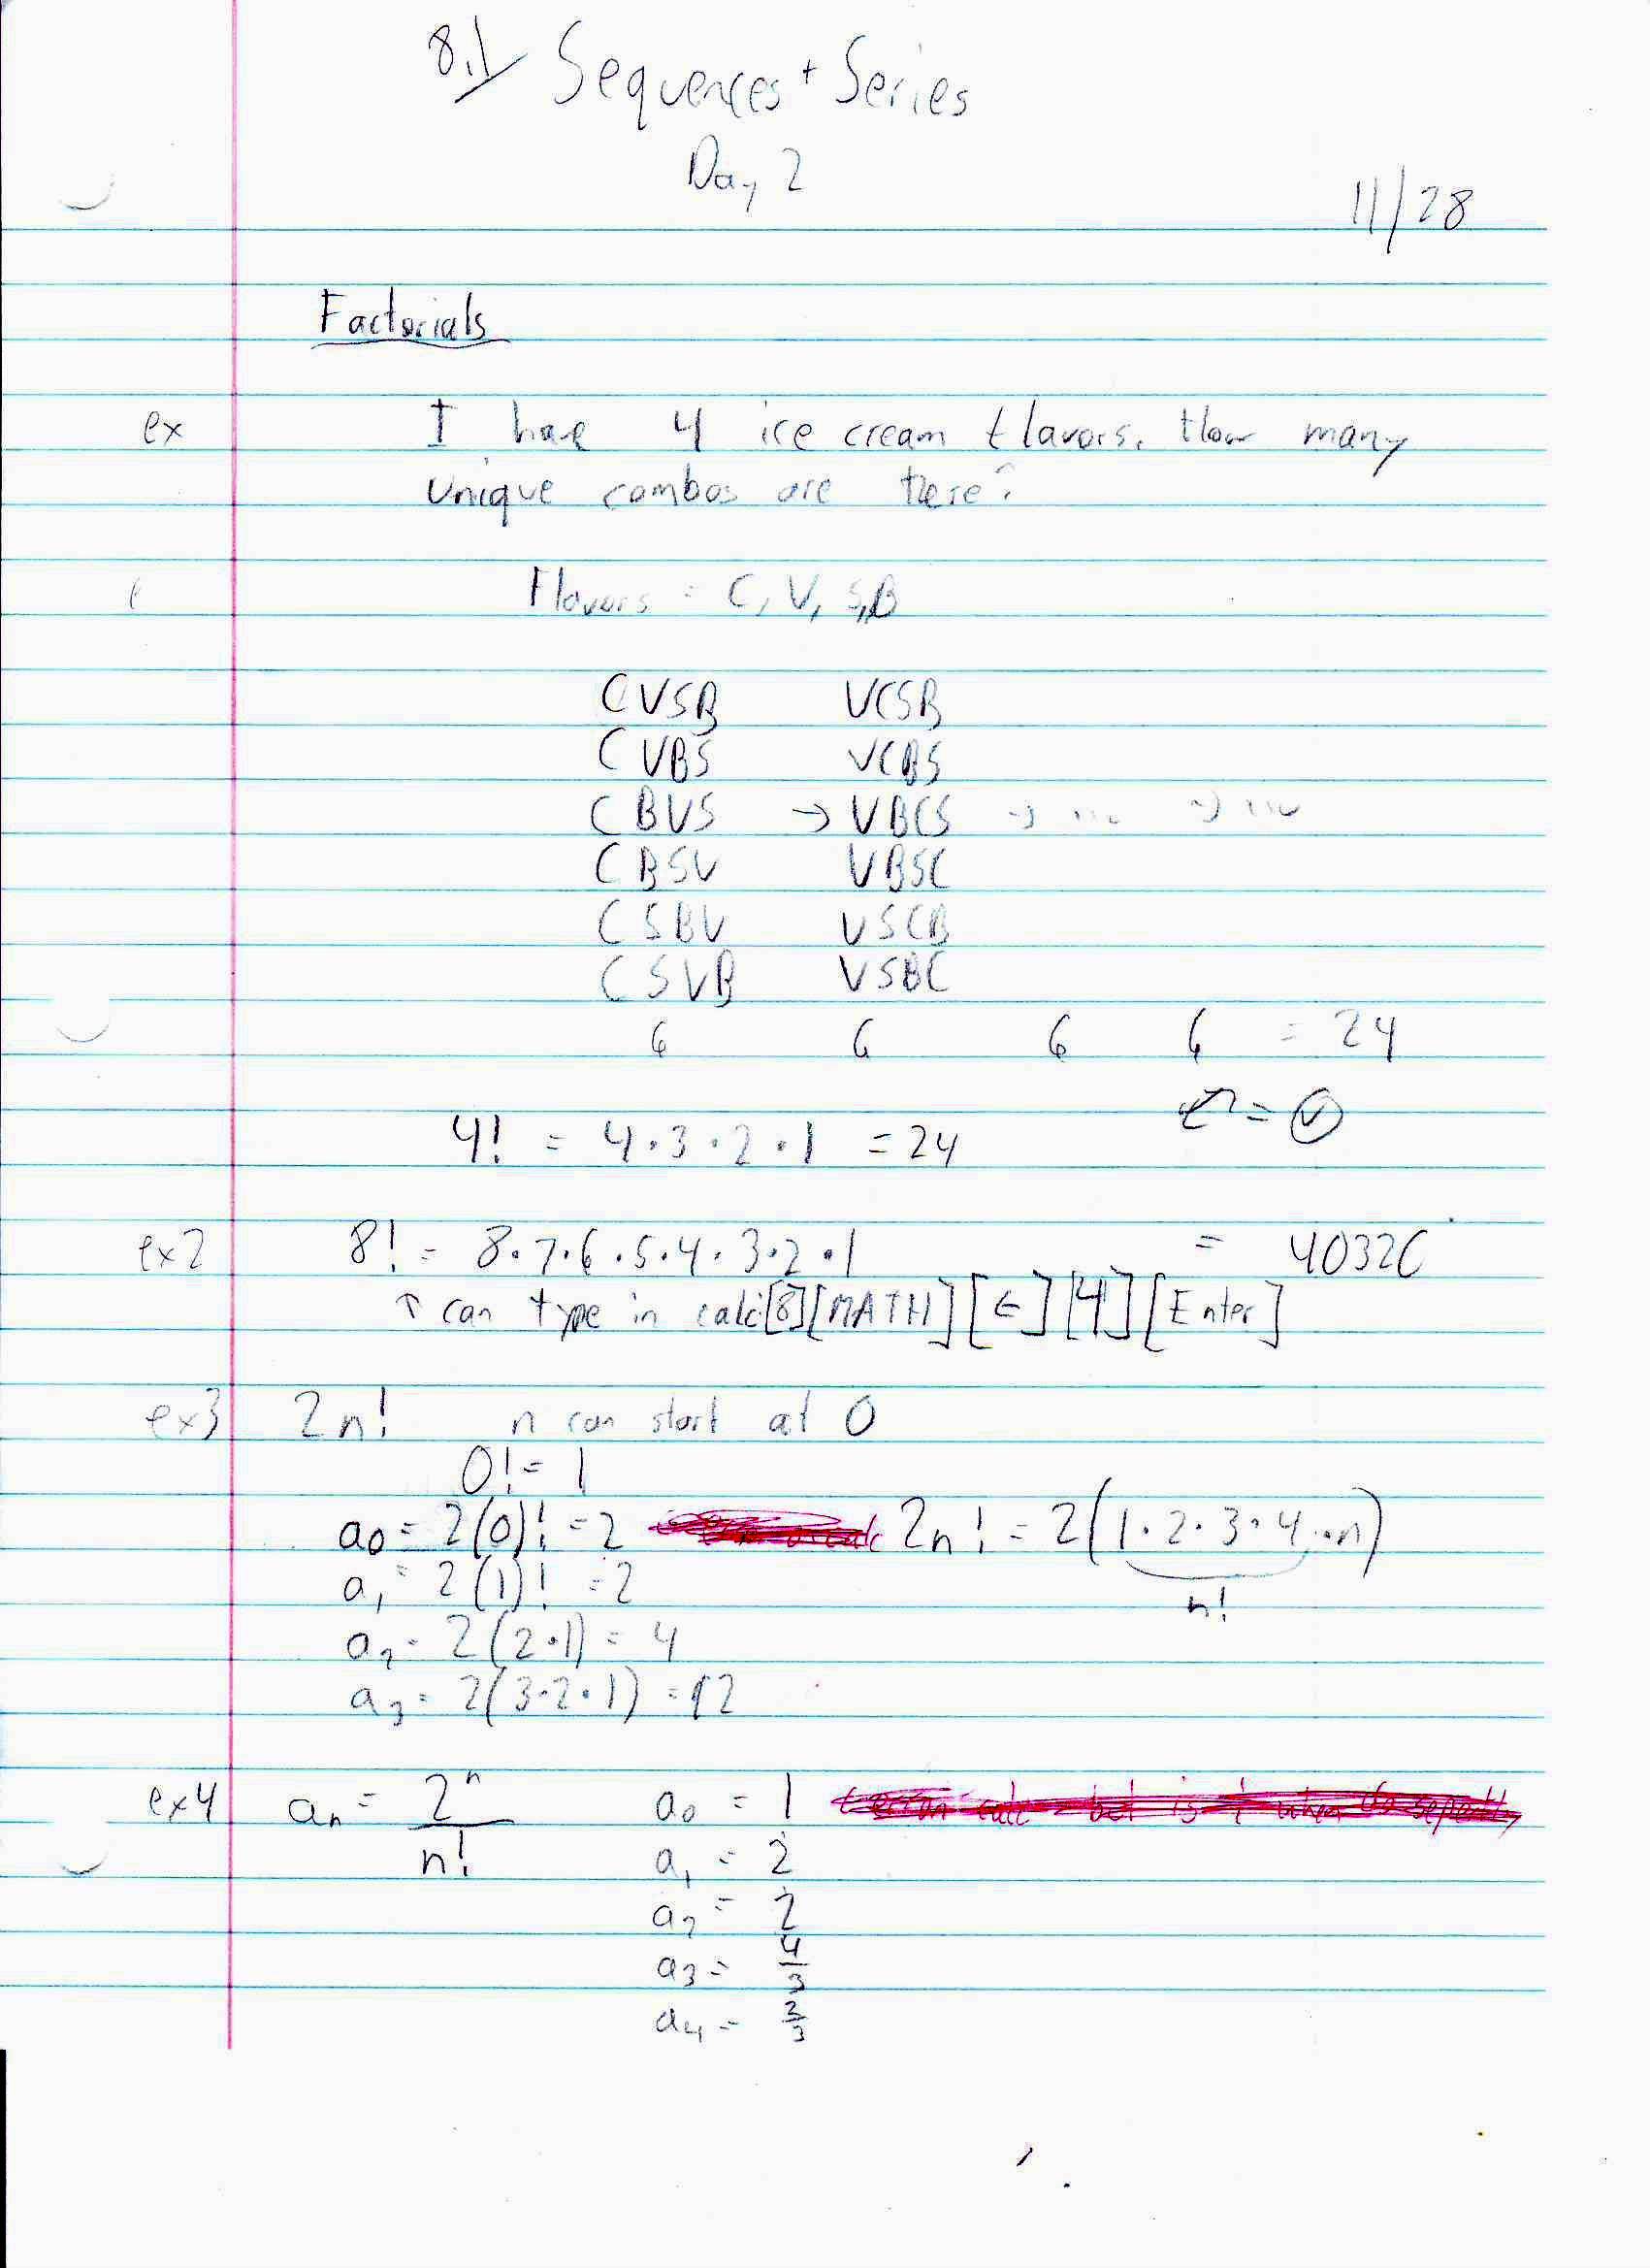 8.1 Sequences + Series
Day 2
11/28
Factorials
ex I have 4 ice cream flavors. How many
unique combos are there?
Flavors = C, V, S, B
CVSB VCSB
CVBS VCBS
CBVS → VBCS → ... → ...
CBSV VBSC
CSBV VSCB
CSVB VSBC
6 6 6 6 = 24
4! = 4·3·2·1 = 24
ex2 8! = 8·7·6·5·4·3·2·1 = 40320
↑ can type in calc [8][MATH][←][4][Enter]
ex3 2n! n can start at 0
0! = 1
a₀ = 2(0)! = 2 2n! = 2(1·2·3·4...n)
a₁ = 2(1)! = 2 n!
a₂ = 2(2·1) = 4
a₃ = 2(3·2·1) = 12
ex4 aₙ = 2ⁿ/n! a₀ = 1
a₁ = 2
a₂ = 2
a₃ = 4/3
a₄ = 2/3